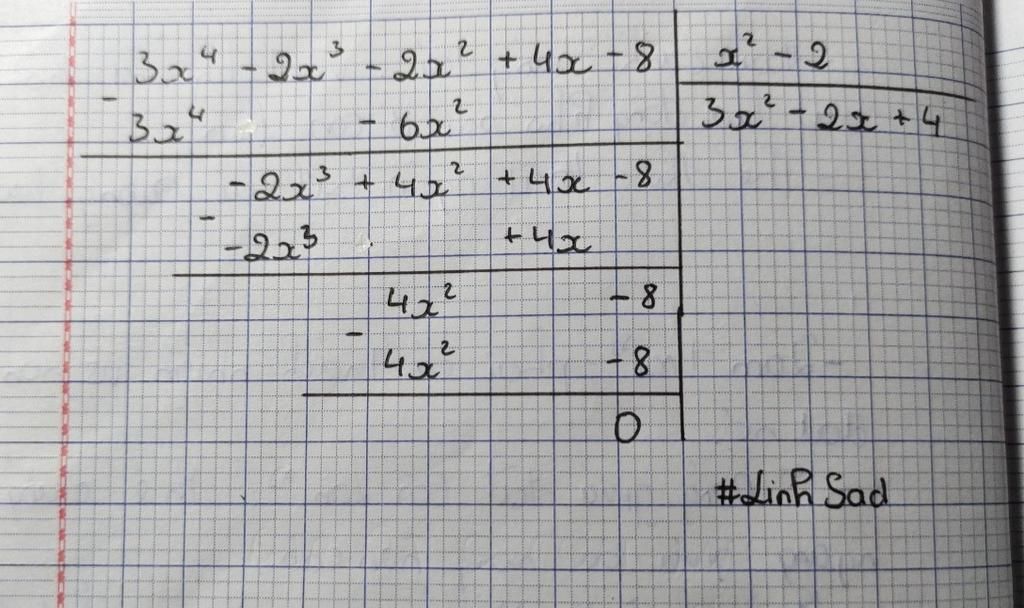 3x⁴ - 2x³ - 2x² + 4x - 8 | x² - 2
-
3x⁴ - 6x² | 3x² - 2x + 4
-2x³ + 4x² + 4x - 8
-
-2x³ + 4x
4x² - 8
-
4x² - 8
0
#Linh Sad